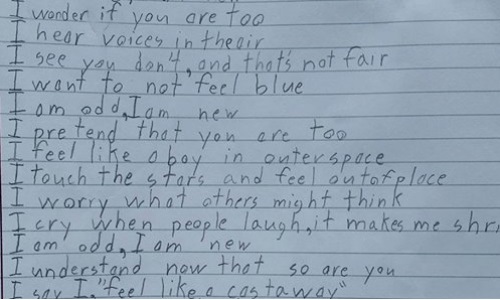 I wonder if you are too
I hear voices in the air
I see you don't, and that's not fair
I want to not feel blue
I am odd, I am new
I pretend that you are too
I feel like a boy in outerspace
I touch the stars and feel out of place
I worry what others might think
I cry when people laugh, it makes me shr
I am odd, I am new
I understand now that so are you
I say I, "feel like a castaway"